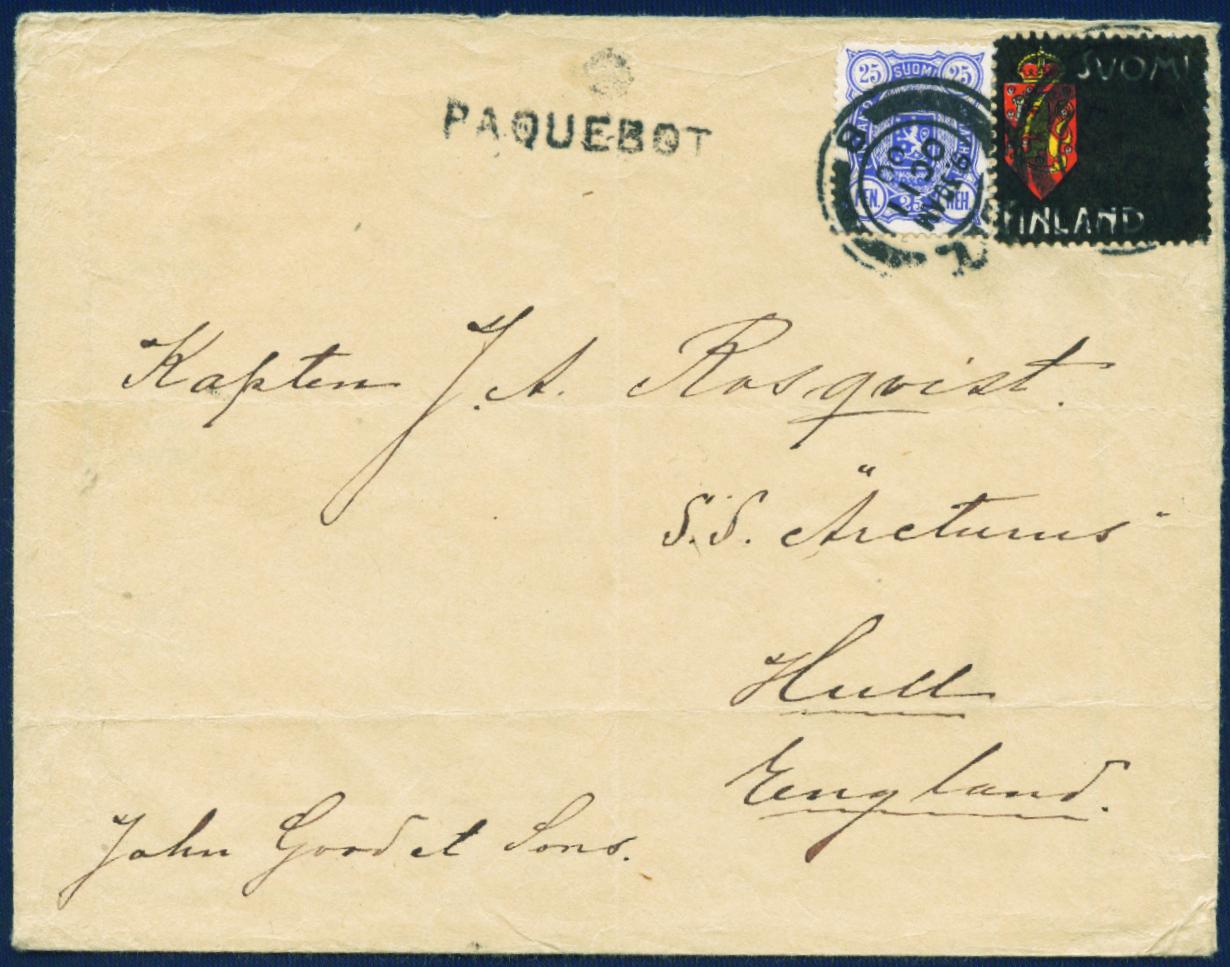 PAQUEBOT
25 SUOMI 25
PEN. 25
SUOMI
FINLAND
Kapten J. A. Rosqvist.
S.S. "Arcturus"
Hull
England.
John Good et Sons.